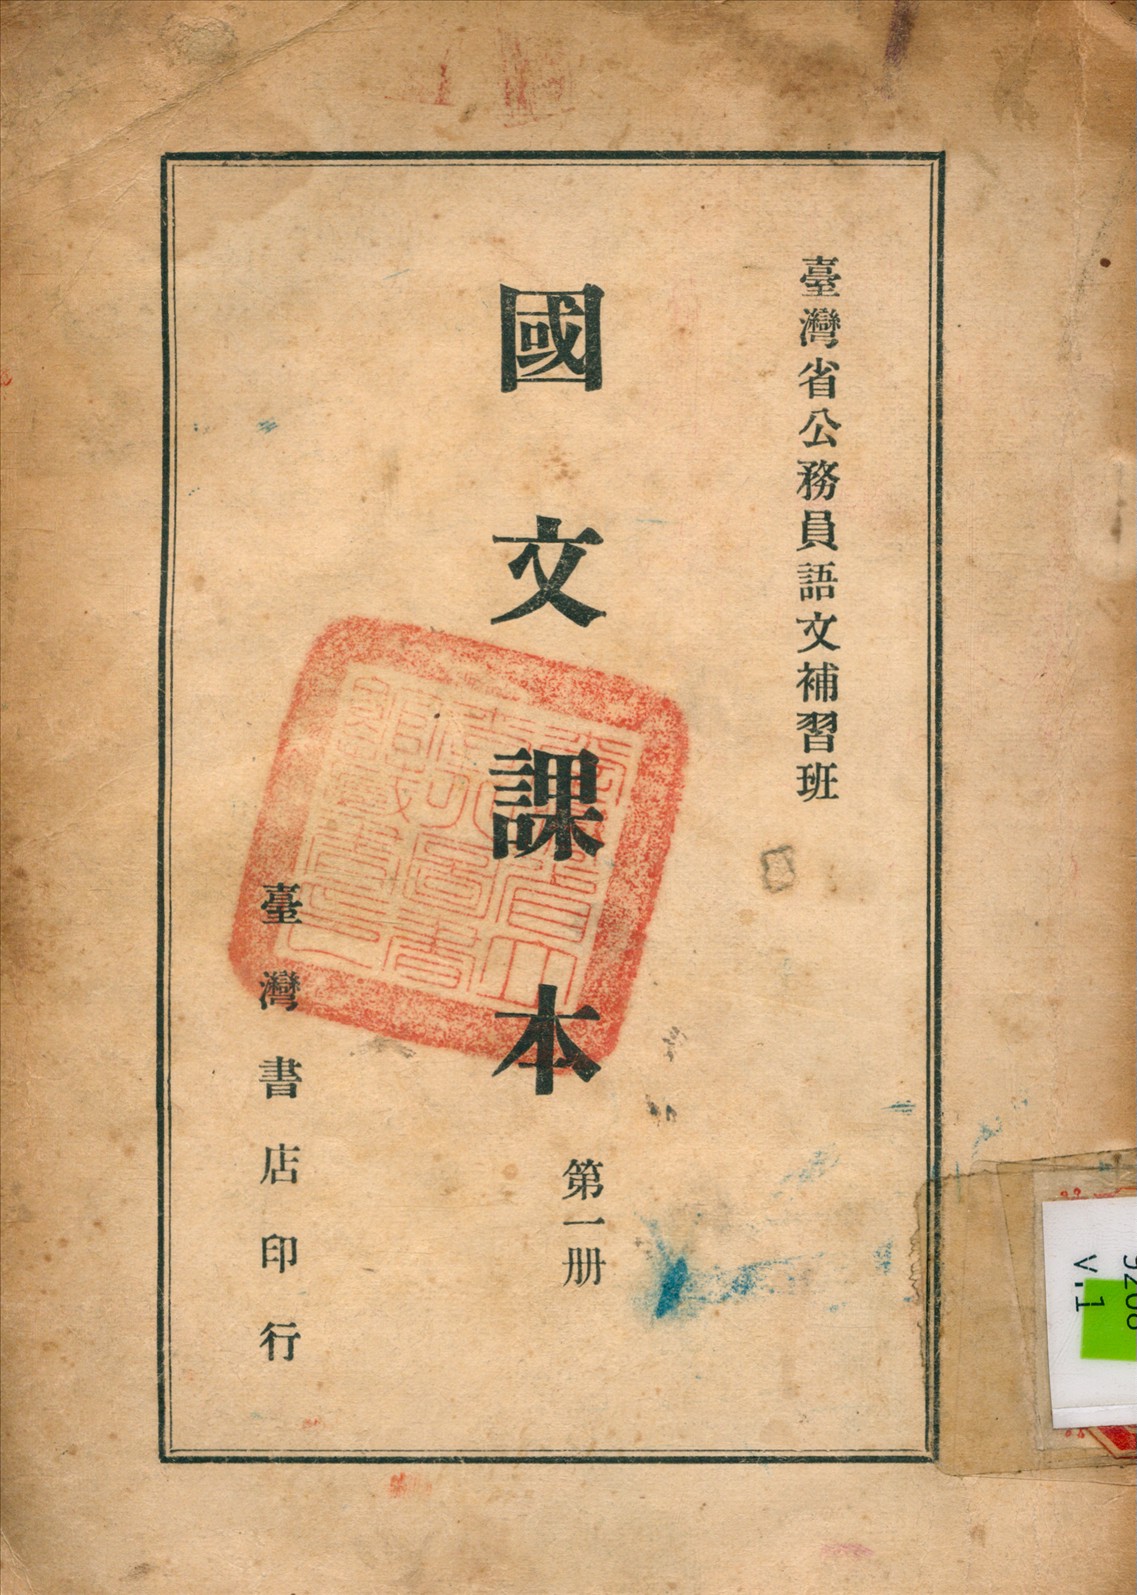 臺灣省公務員語文補習班
國文課本
第一册
臺灣書店印行
9208
v.1